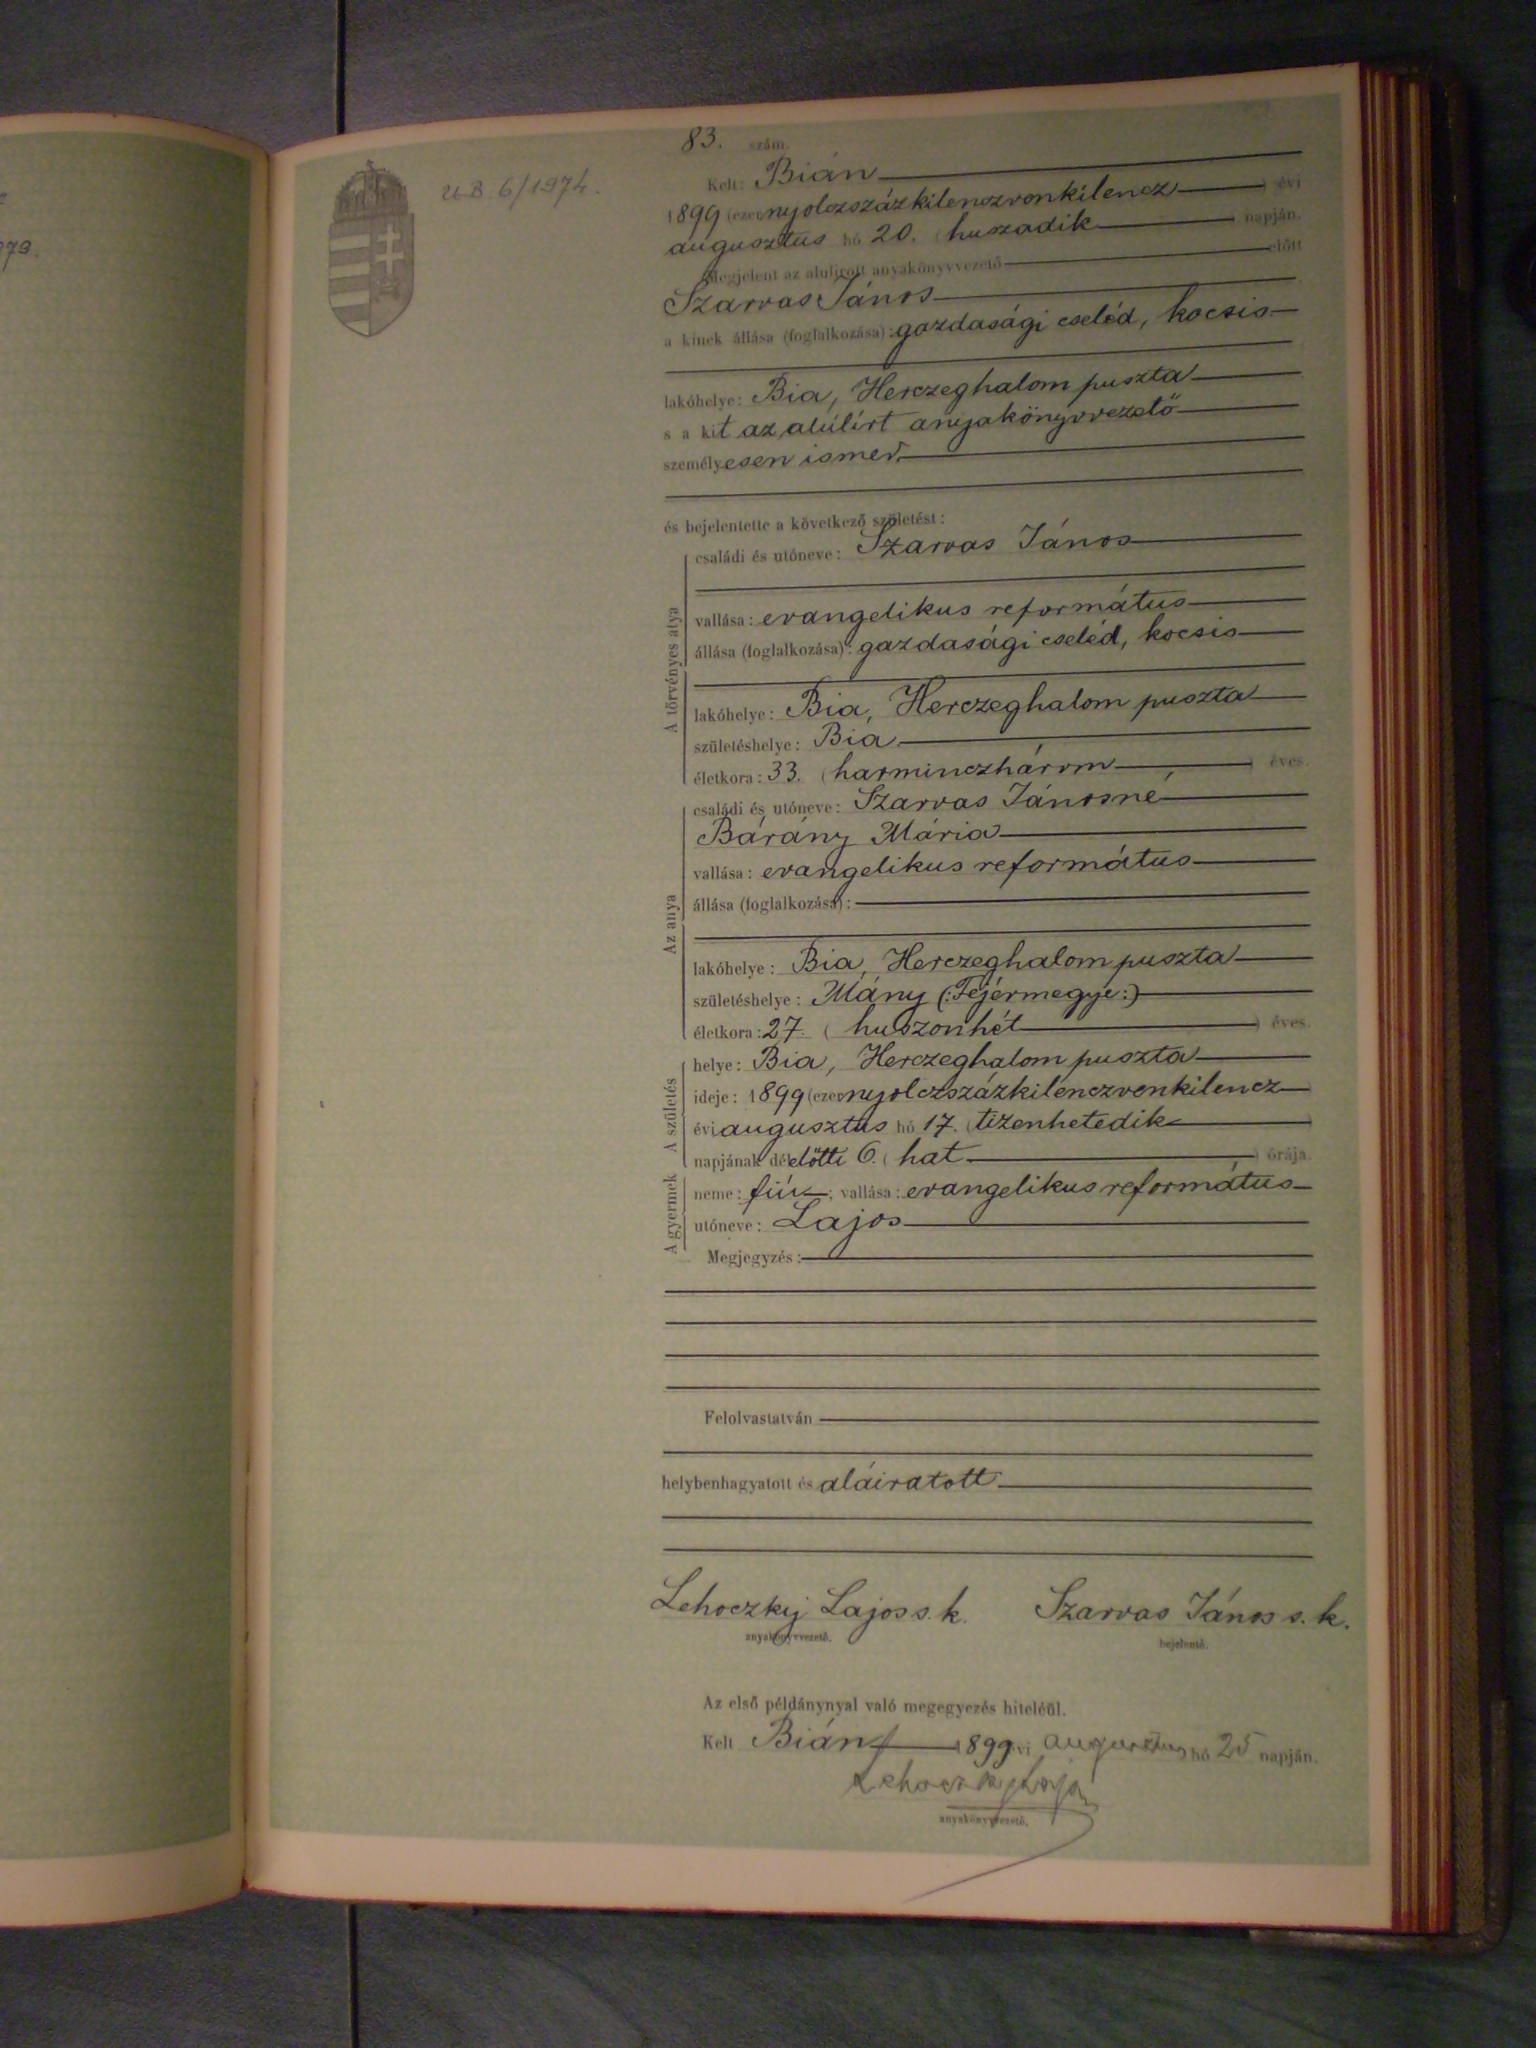 979.
U.B. 6/1974.
83. szám.
Kelt: Bián
1899 (ezernyolczszázkilenczvenkilencz) évi
augusztus hó 20. (huszadik) napján.
Megjelent az alulirott anyakönyvvezető előtt
Szarvas János
a kinek állása (foglalkozása): gazdasági cseléd, kocsis
lakóhelye: Bia, Herczeghalom puszta
s a kit az alúlírt anyakönyvvezető
személyesen ismer,
és bejelentette a következő születést:
A törvényes atya
családi és utóneve: Szarvas János
vallása: evangelikus református
állása (foglalkozása): gazdasági cseléd, kocsis
lakóhelye: Bia, Herczeghalom puszta
születéshelye: Bia
életkora: 33. (harminczhárom) éves.
Az anya
családi és utóneve: Szarvas Jánosné
Bárány Mária
vallása: evangelikus református
állása (foglalkozása):
lakóhelye: Bia, Herczeghalom puszta
születéshelye: Mány (:Fejérmegye:)
életkora: 27. (huszonhét) éves.
A születés
helye: Bia, Herczeghalom puszta
ideje: 1899 (ezernyolczszázkilenczvenkilencz)
évi augusztus hó 17. (tizenhetedik)
napjának délelőtti 6. (hat) órája.
A gyermek
neme: fiú; vallása: evangelikus református
utóneve: Lajos
Megjegyzés:
Felolvastatván
helybenhagyatott és aláiratott
Lehoczky Lajos s. k. Szarvas János s. k.
anyakönyvvezető. bejelentő.
Az első példánynyal való megegyezés hiteléül.
Kelt Bián 1899 évi augusztus hó 25 napján.
Lehoczky Lajos
anyakönyvvezető.